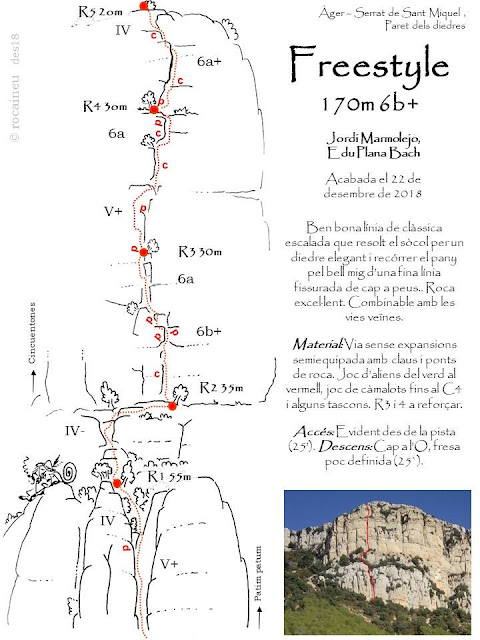 Àger – Serrat de Sant Miquel ,
Paret dels diedres
Freestyle
170m 6b+
Jordi Marmolejo,
Edu Plana Bach
Acabada el 22 de
desembre de 2018
Ben bona línia de clàssica
escalada que resolt el sòcol per un
diedre elegant i recórrer el pany
pel bell mig d'una fina línia
fissurada de cap a peus.. Roca
excel·lent. Combinable amb les
vies veïnes.
Material: Via sense expansions
semiequipada amb claus i ponts
de roca. Joc d'aliens del verd al
vermell, joc de càmalots fins al C4
i alguns tascons. R3 i 4 a reforçar.
Accés: Evident des de la pista
(25'). Descens: Cap a l'O, fresa
poc definida (25').
© rocaineu des18
R5 20m
IV
c
6a+
c
R4 30m
p
c
p
6a
c
V+
p
p
R3 30m
6a
p
p
6b+
c
R2 35m
Cincuentones
IV-
R1 55m
IV
p
V+
Patim patum